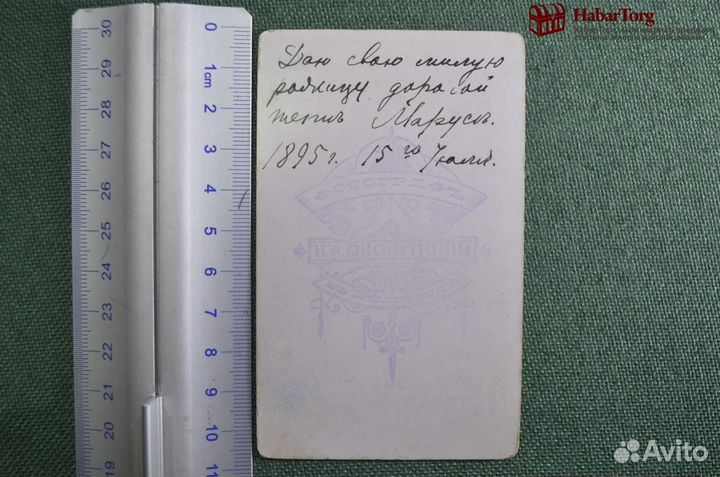 HabarTorg
30
29
28
27
26
25
24
23
22
21
20
19
0
1cm
2
3
4
5
6
7
8
9
10
11
Даю свою милую
рожицу дорогой
тепль Марусь.
1895г. 15го Іюля.
ФОТОГРАФІЯ
К.А.СКОРУПСКІЙ
Avito